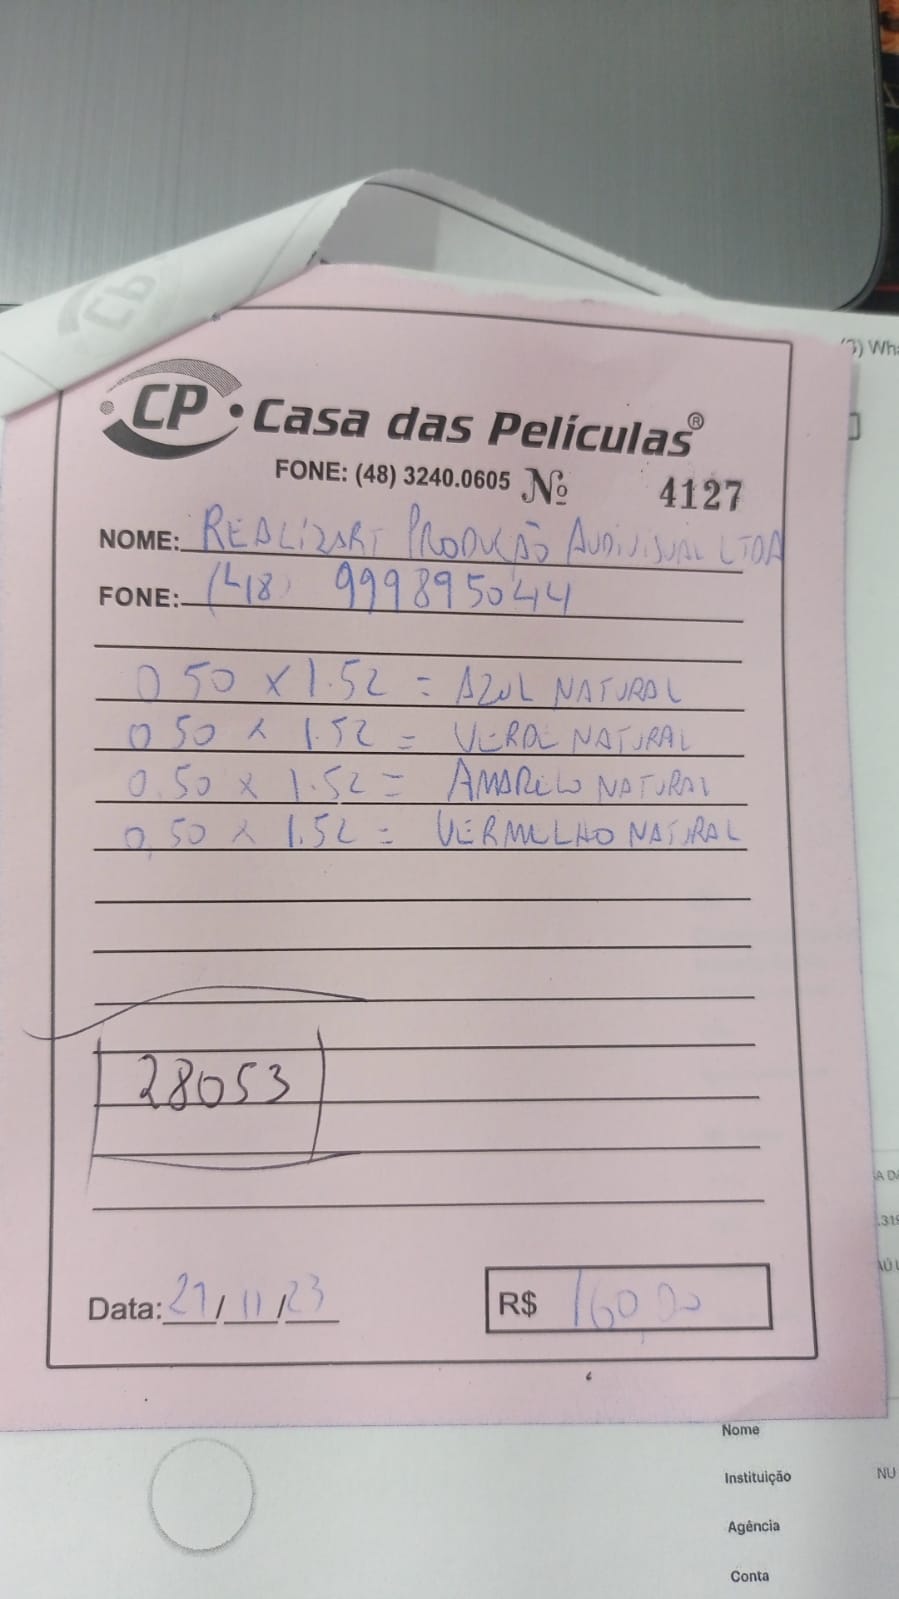 CP • Casa das Películas®
FONE: (48) 3240.0605 Nº 4127
NOME: REALIZART PRODUÇÃO AUDIVISUAL LTDA
FONE: (48) 999895044
0 50 x 1.52 = AZUL NATURAL
0 50 x 1.52 = VERDE NATURAL
0.50 x 1.52 = AMARELO NATURAL
0,50 x 1.52 = VERMELHO NATURAL
28053
Data: /11/23
R$ 160,00
Nome
Instituição NU
Agência
Conta